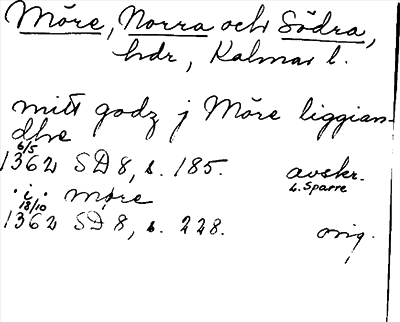 Möre, Norra och Södra,
hdr, Kalmar l.
mitt godz j Möre liggian-
dhe
6/5
1362 SD 8, s. 185. avskr.
L. Sparre
. i . møre
18/10
1362 SD 8, s. 228. orig.